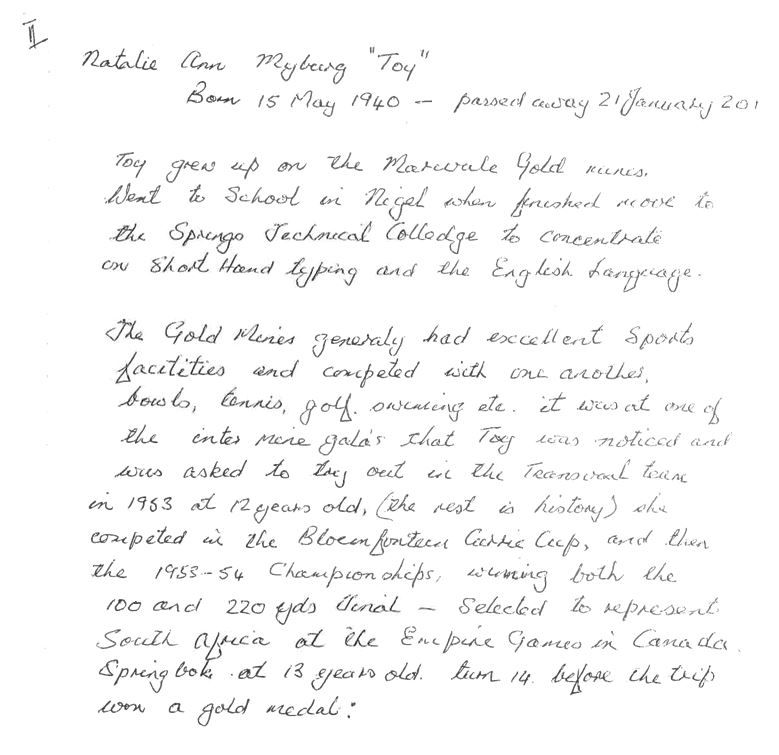 II
Natalie Ann Myburg "Toy"
Born 15 May 1940 – passed away 21 January 201
Toy grew up on the Marivale Gold mines.
Went to School in Nigel when finished move to
the Springs Technical Colledge to concentrate
on Short Hand typing and the English Language.
The Gold Mines generaly had excellent Sports
facilities and competed with one another,
bowls, tennis, golf. swimming etc. it was at one of
the inter mine gala's that Toy was noticed and
was asked to try out in the Transvaal team
in 1953 at 12 years old, (the rest is history) she
competed in the Bloemfontein Currie Cup, and then
the 1953-54 Championships, winning both the
100 and 220 yds Final – Selected to represent
South Africa at the Empire Games in Canada.
Springbok at 13 years old. turn 14 before the trip
won a gold medal: